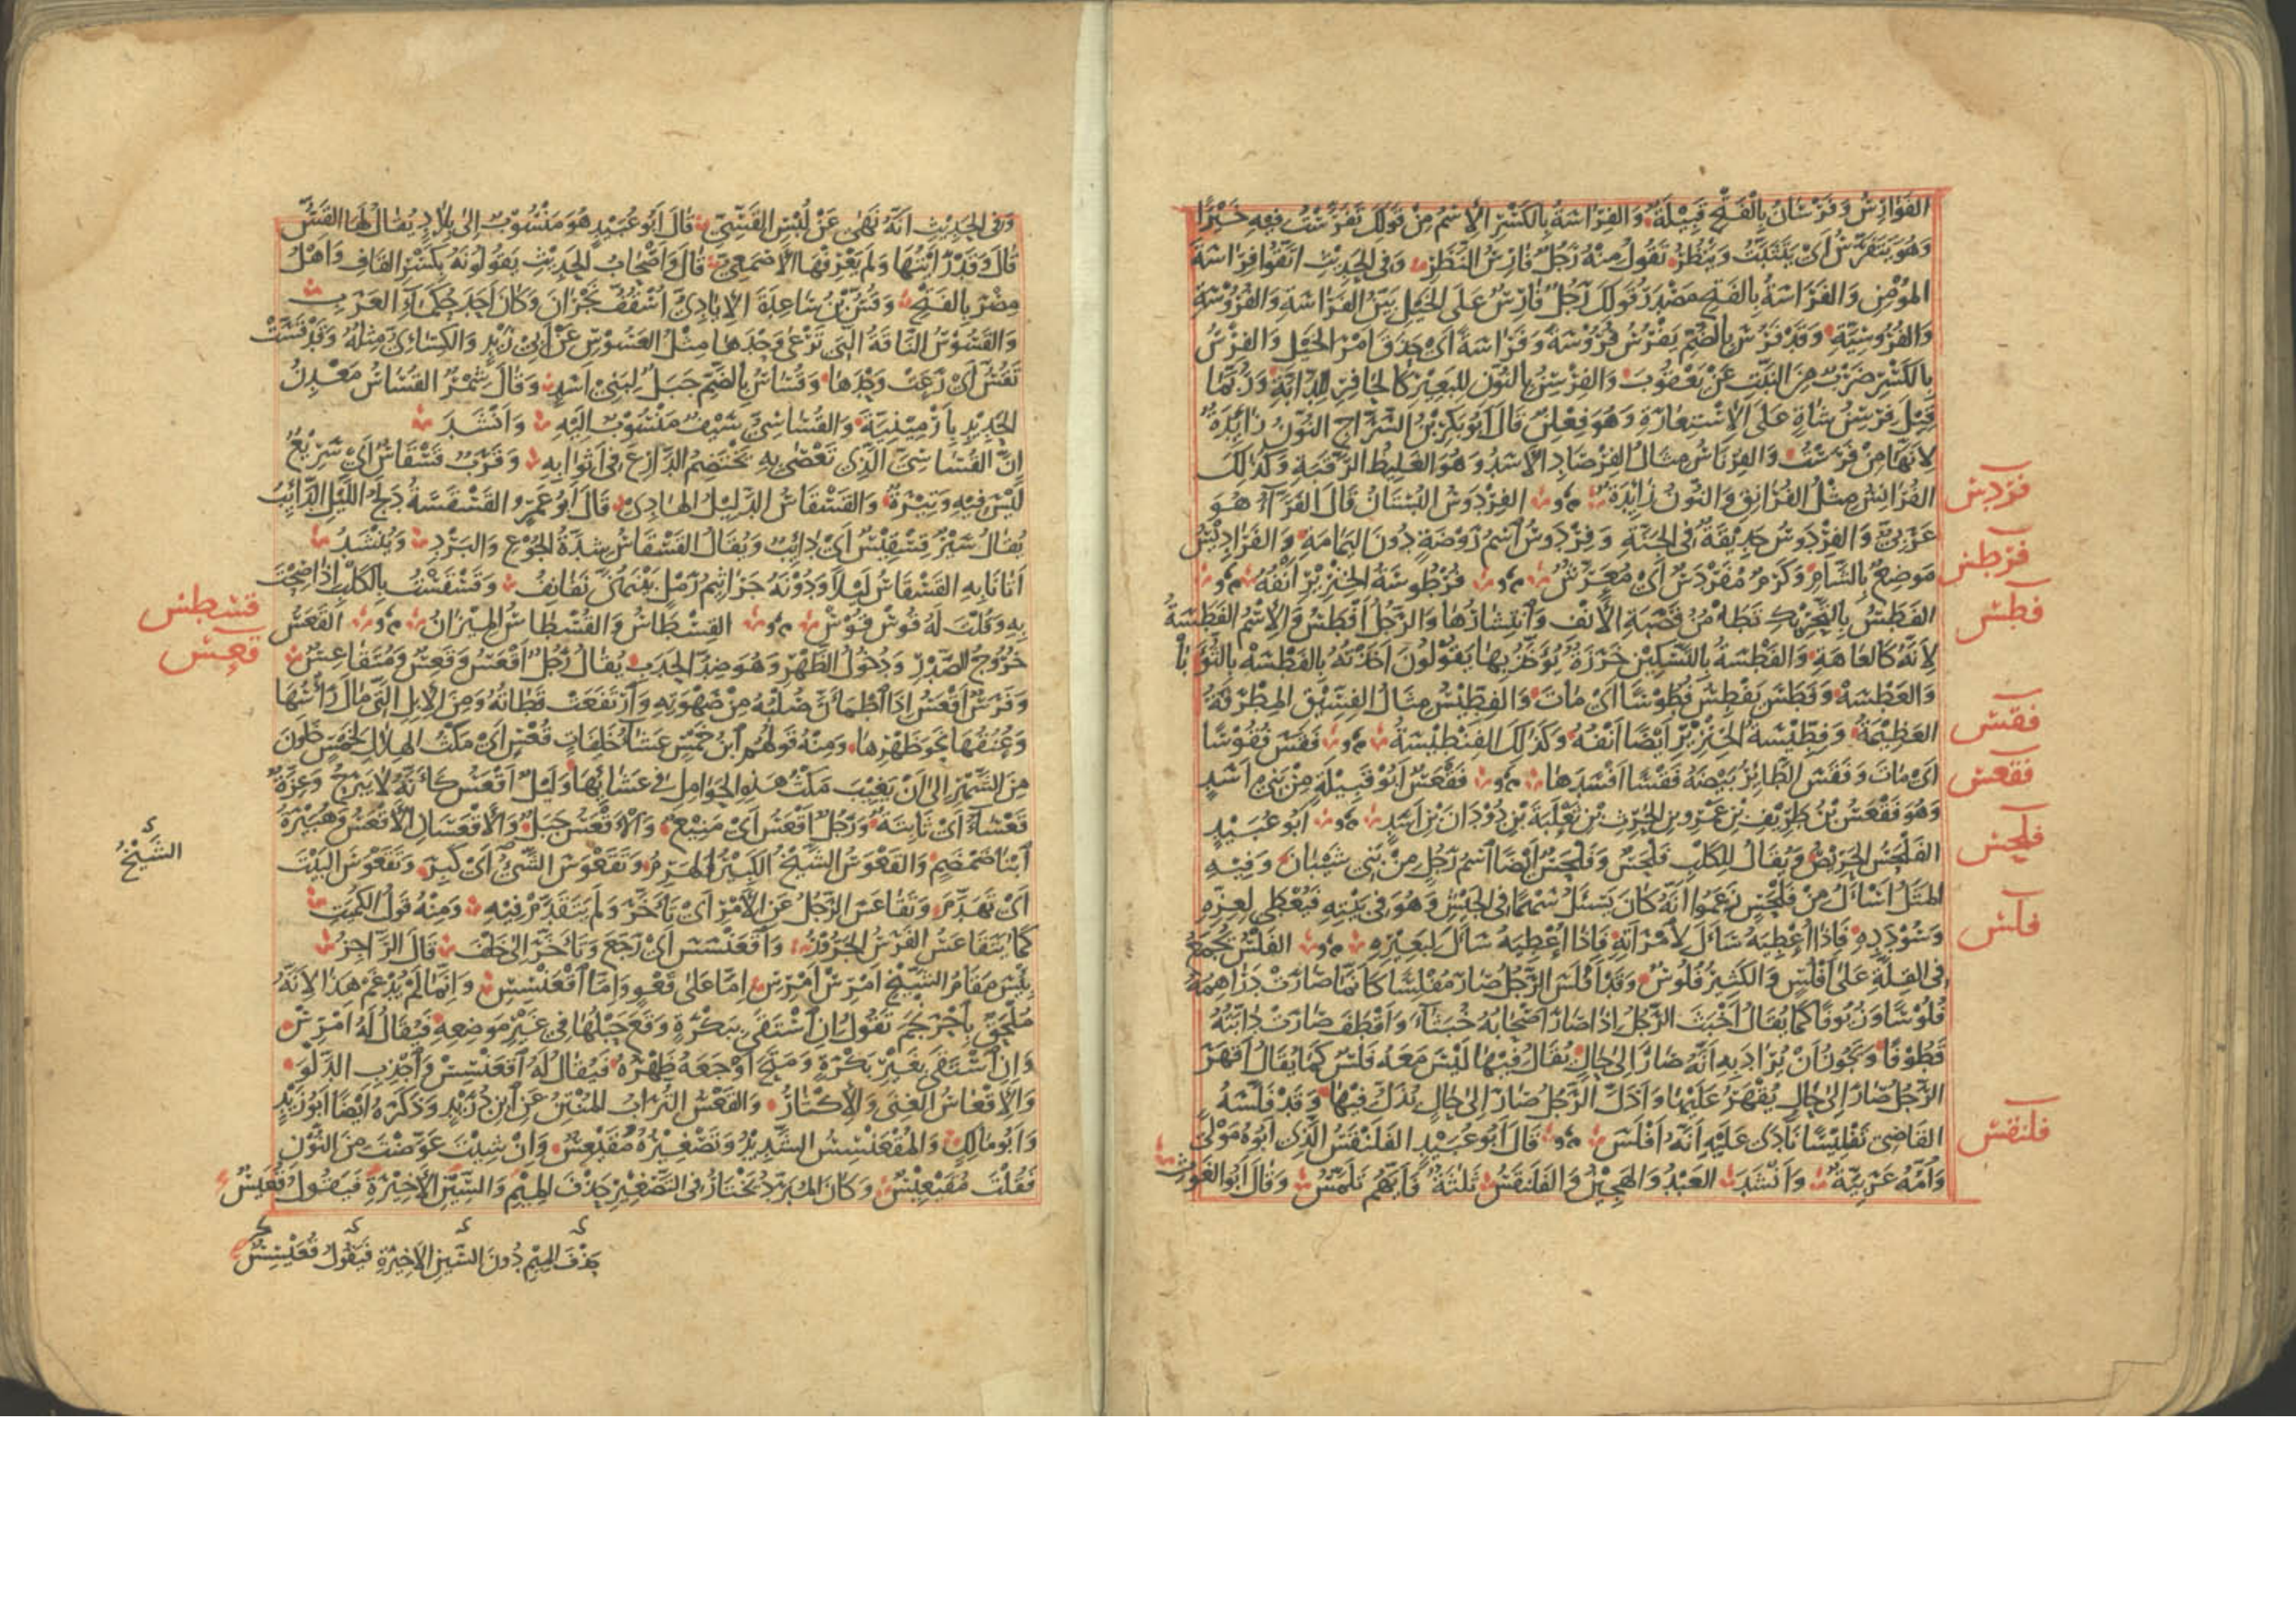 الفوارس وفرسان بالفتح قبيلة والفراسة بالكسر الاسم من قولك تفرست فيه خيرا
وهو يتفرس أي يتثبت وينظر تقول منه رجل فارس النظر وفي الحديث اتقوا فراسة
المؤمن والفراسة بالفتح مصدر قولك رجل فارس على الخيل بين الفراسة والفروسة
والفروسية وقد فرس بالضم يفرس فروسة وفراسة أي حذق امر الخيل والفرس
بالكسر ضرب من النبت عن يعقوب والفرسن بالنون للبعير كالحافر للدابة وربما
قيل فرسن شاة على الاستعارة وهو فعلن قال أبو بكر بن السراج النون زائدة
لأنها من فرست والفرناس مثال الفرصاد الأسد وهو الغليظ الرقبة وكذلك
فردس
الفرانس مثل الفرانق والنون زائدة الفردوس البستان قال الفراء هو
عربي والفردوس حديقة في الجنة وفردوس اسم روضة دون اليمامة والفراديس
فرطس
موضع بالشام وكرم مفردس أي معرش فرطوسة الخنزير أنفه
فطس
الفطس بالتحريك تطامن قصبة الأنف وانتشارها والرجل أفطس والاسم الفطسة
لأنه كالعاهة والفطسة بالتسكين خرزة يؤخذ بها يقولون أخذته بالفطسه بالثؤبا
والعطسه وفطس يفطس فطوسا أي مات والفطيس مثال الفسيق المطرقة
فقس
العظيمة وفطيسة الخنزير أيضا أنفه وكذلك الفنطيسة فقس فقوسا
فقعس
أي مات وفقس الطائر بيضه فقسا أفسدها فقعس أبو قبيلة من بني أسد
وهو فقعس بن طريف بن عمرو بن الحرث بن ثعلبة بن دودان بن أسد أبو عبيد
فلحس
الفلحس الحريص ويقال للكلب فلحس وفلحس أيضا اسم رجل من بني شيبان وفيه
المثل أسأل من فلحس زعموا أنه كان يسئل سهما في الجيش وهو في بيته فيعطى لعزه
فلس
وسودده فإذا أعطيه سأل لامرأته فإذا أعطيه سأل لبعيره الفلس يجمع
في القلة على أفلس والكثير فلوس وقد أفلس الرجل صار مفلسا كأنما صارت دراهمه
فلوسا وزيوفا كما يقال أخبث الرجل إذا صار أصحابه خبثاء وأقطف صارت دابته
قطوفا ويجوز أن يراد به أنه صار إلى حال يقال فيها ليس معه فلس كما يقال أقهر
الرجل صار إلى حال يقهر عليها وأذل الرجل صار إلى حال يذل فيها وقد فلسه
فلنقس
القاضي تفليسا نادى عليه أنه أفلس قال أبو عبيد الفلنقس الذي أبوه مولى
وأمه عربية وأنشد العبد والهجين والفلنقس ثلثة فأيهم تلمس وقال أبو الغوث
وفي الحديث أنه نهى عن لبس القسي قال أبو عبيد هو منسوب إلى بلاد يقال لها القس
قال وقد رأيتها ولم يعرفها الأصمعي قال وأصحاب الحديث يقولونه بكسر القاف وأهل
مصر بالفتح وقس بن ساعدة الايادي أسقف نجران وكان أحد حكماء العرب
والقسوس الناقة التي ترعى وحدها مثل العسوس عن أبي زيد والكسائي مثله وقد قست
تقس أي رعت وحدها وقساس بالضم جبل لبني أسد وقال شمر القساس معدن
الحديد بارمينية والقساسي سيف منسوب إليه وأنشد
إن القساسي الذي تعصى به يختصم الدارع في أثوابه وقرب قسقاس أي سريع
ليس فيه وتيرة والقسقاس الدليل الهادي قال أبو عمرو القسقسة دلج الليل الدائب
يقال سير قسقيس أي دائب ويقال القسقاس شدة الجوع والبرد وينشد
أتانا به القسقاس ليلا ودونه جراثيم رمل بينهن نفانف وقسقست بالكلب إذا صحت
قسطس
به وقلت له قوس قوس القسطاس والقسطاس الميزان القعس
قعس
خروج الصدر ودخول الظهر وهو ضد الحدب يقال رجل أقعس وقعس ومتقاعس
وفرس أقعس إذا اطمأن صلبه من صهوته وارتفعت قطاته ومن الإبل التي مال رأسها
وعنقها نحو ظهرها ومنه قولهم ابن خمس عشاء خلفات قعس أي مكث الهلال لخمس خلون
من الشهر إلى أن يغيب مكث هذه الحوامل في عشائها وليل أقعس كأنه لا يبرح وعزة
قعساء أي ثابتة ورجل أقعس أي منيع والأقعس جبل والأقعسان الأقعس وهبيرة
الشيخ
ابنا ضمضم والقعوس الشيخ الكبير الهرم وتقعوس الشيء أي كبر وتقعوس البيت
أي تهدم وتقاعس الرجل عن الأمر أي تأخر ولم يتقدم فيه ومنه قول الكميت
كما يتقاعس الفرس الحرون واقعنسس أي رجع وتأخر إلى خلف قال الراجز
بئس مقام الشيخ أمرس أمرس إما على قعو وإما اقعنسس وإنما لم يدغم هذا لأنه
ملحق باحرنجم تقول إن استقى ببكرة وقع حبلها في غير موضعه فيقال له أمرس
وإن استقى بغير بكرة ومتح أوجعه ظهره فيقال له اقعنسس واجذب الدلو
والاقعاس الغنى والاكثار والقعس التراب المنتن عن ابن دريد وذكره أيضا أبو زيد
وأبو مالك والمقعنسس الشديد وتصغيره مقيعس وإن شئت عوضت من النون
فقلت مقيعيس وكان المبرد يختار في التصغير حذف الميم والسين الأخيرة فيقول قعيس
بحذف الميم دون السين الأخيرة فيقول قعيسس